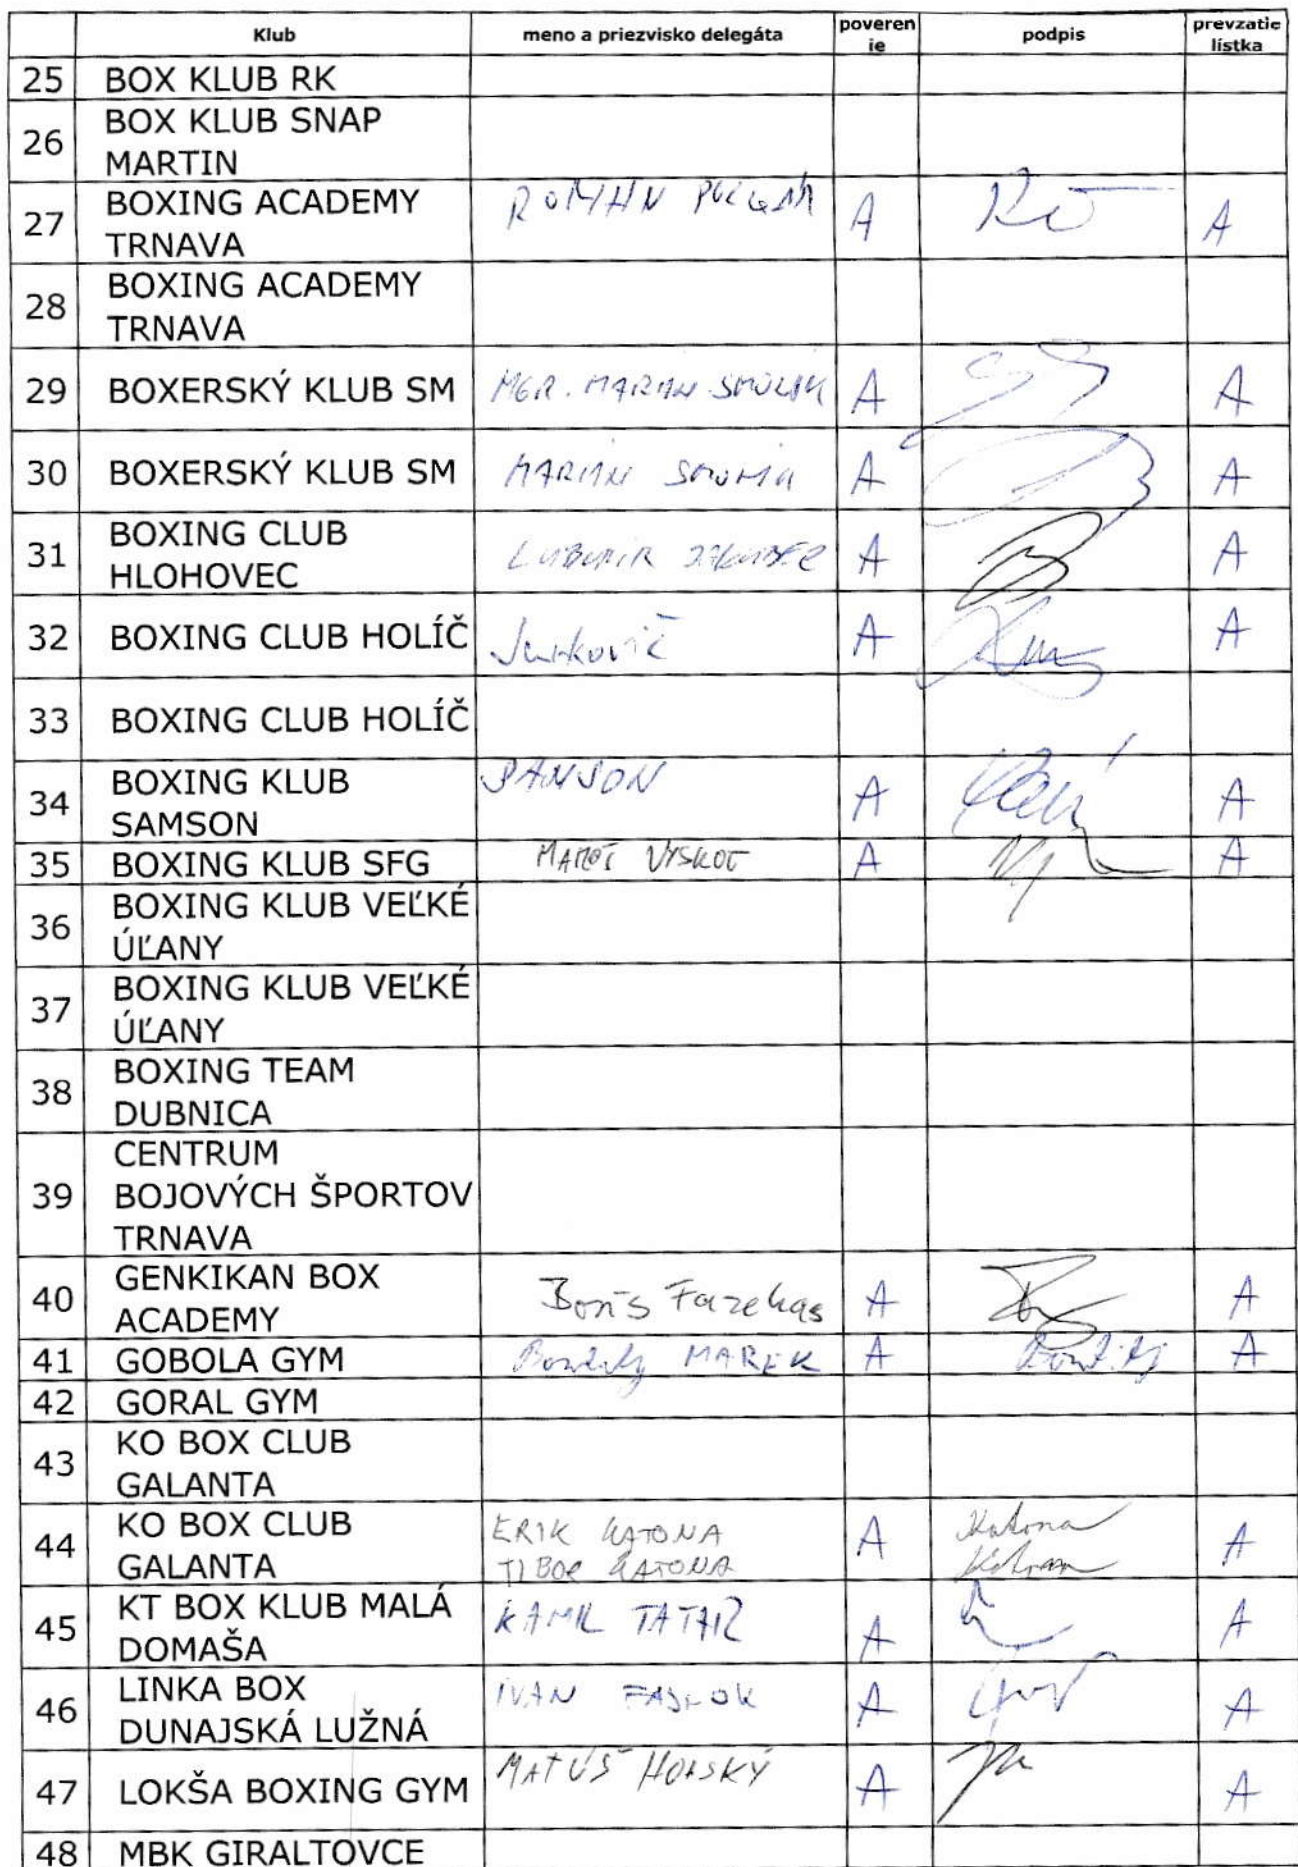 Klub meno a priezvisko delegáta poveren ie podpis prevzatie lístka
25 BOX KLUB RK
26 BOX KLUB SNAP
MARTIN
27 BOXING ACADEMY
TRNAVA ROMAN A A
28 BOXING ACADEMY
TRNAVA
29 BOXERSKÝ KLUB SM MGR. MARIAN A A
30 BOXERSKÝ KLUB SM MARIAN A A
31 BOXING CLUB
HLOHOVEC A A
32 BOXING CLUB HOLÍČ A A
33 BOXING CLUB HOLÍČ
34 BOXING KLUB
SAMSON A A
35 BOXING KLUB SFG A A
36 BOXING KLUB VEĽKÉ
ÚĽANY
37 BOXING KLUB VEĽKÉ
ÚĽANY
38 BOXING TEAM
DUBNICA
39 CENTRUM
BOJOVÝCH ŠPORTOV
TRNAVA
40 GENKIKAN BOX
ACADEMY Boris Fazekas A A
41 GOBOLA GYM MAREK A A
42 GORAL GYM
43 KO BOX CLUB
GALANTA
44 KO BOX CLUB ERIK KATONA A Katona A
GALANTA TIBOR KATONA
45 KT BOX KLUB MALÁ
DOMAŠA KAMIL TATAR A A
46 LINKA BOX
DUNAJSKÁ LUŽNÁ IVAN A A
47 LOKŠA BOXING GYM MATÚŠ A A
48 MBK GIRALTOVCE